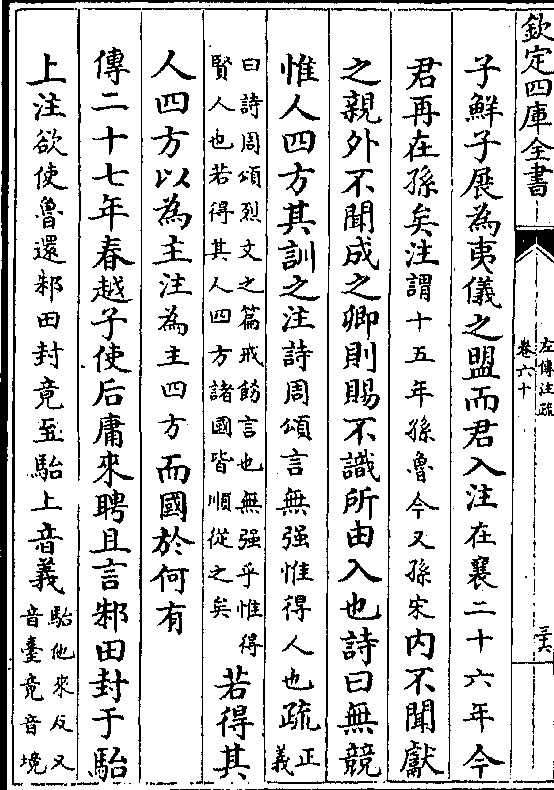 欽定四庫全書
左傳注疏
卷六十
三六
子鮮子展為夷儀之盟而君入注在襄二十六年今
君再在孫矣注謂十五年孫魯今又孫宋内不聞獻
之親外不聞成之卿則賜不識所由入也詩曰無競
惟人四方其訓之注詩周頌言無强惟得人也疏正義
曰詩周頌烈文之篇戒飭言也無强乎惟得
賢人也若得其人四方諸國皆順從之矣
若得其
人四方以為主注為主四方而國於何有
傳二十七年春越子使后庸來聘且言邾田封于駘
上注欲使魯還邾田封竟至駘上音義
駘他來反又
音臺竟音境